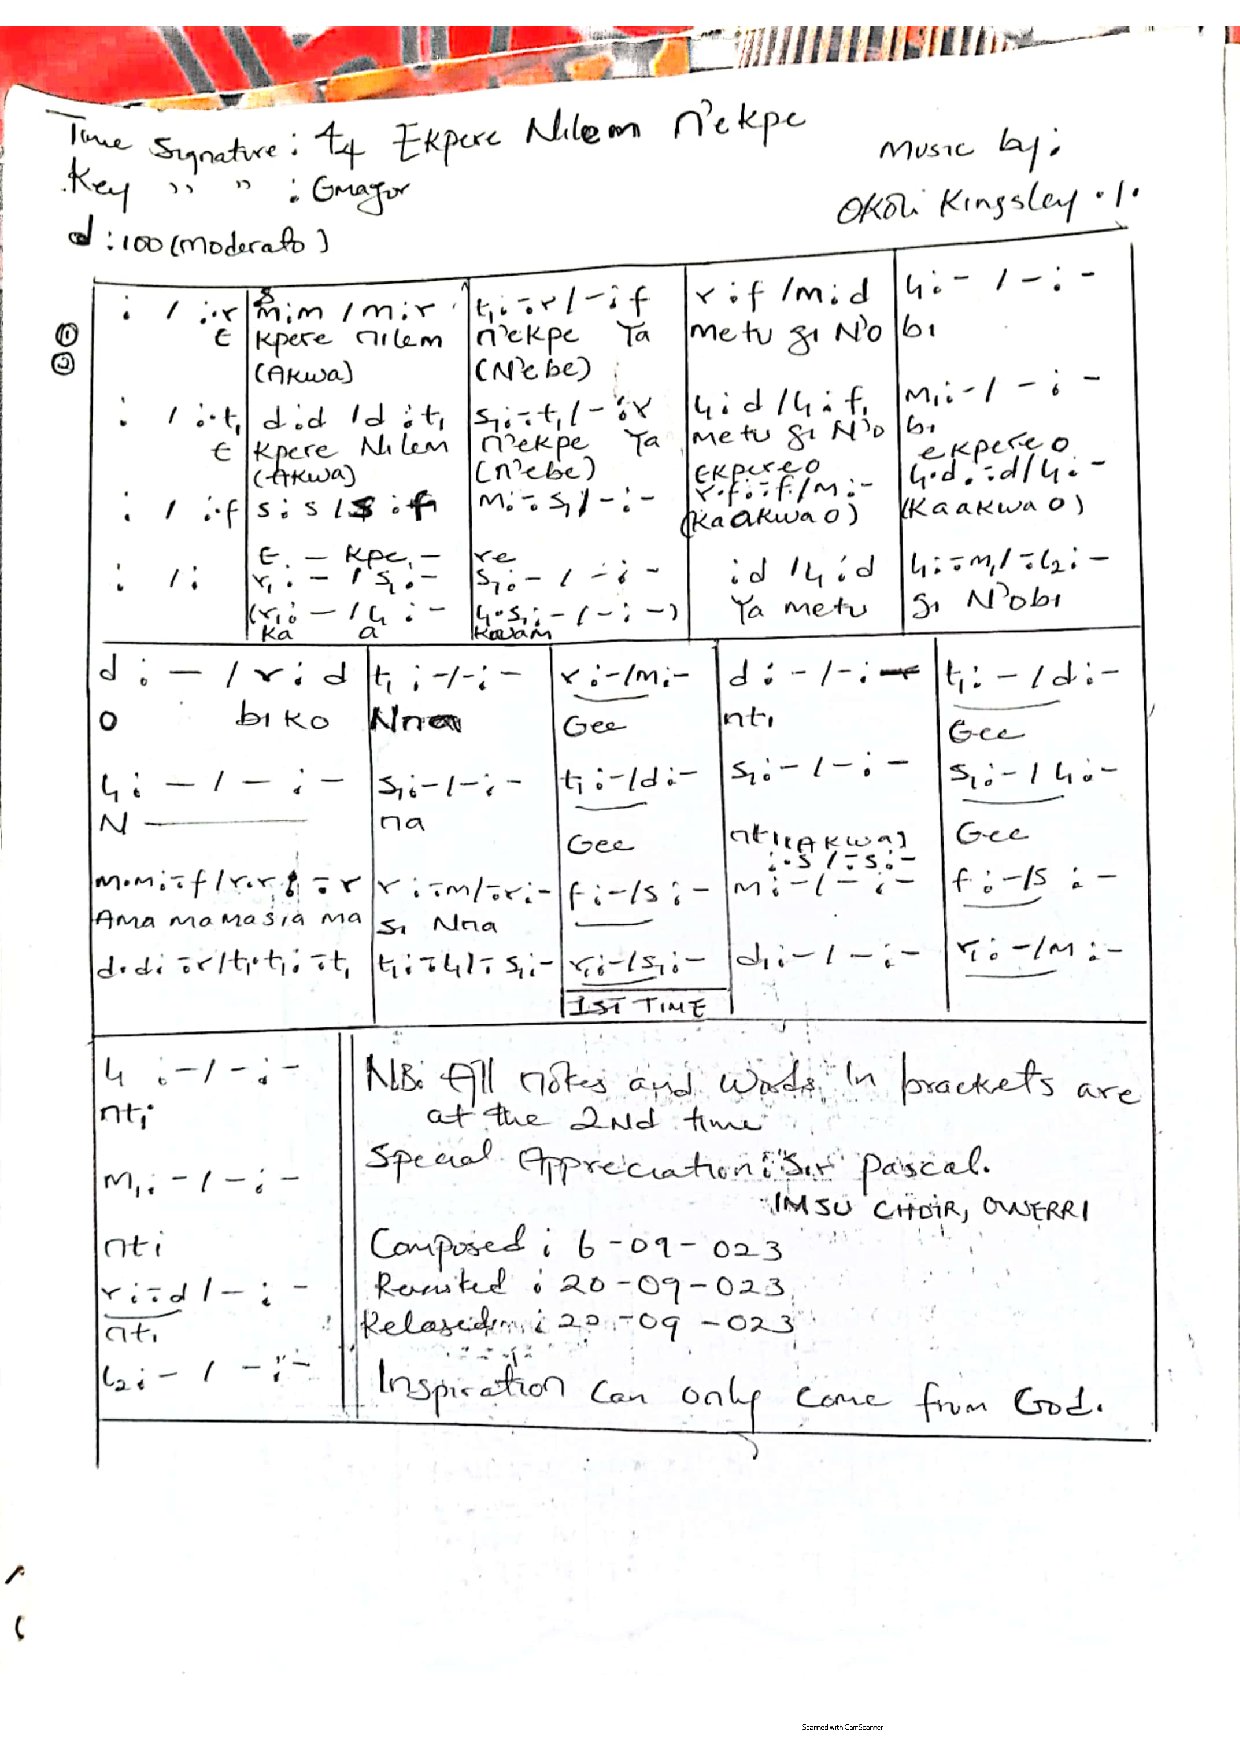 Time Signature: 4/4 Ekpere Nilem n'ekpe
Key " " : Gmajor
Music by:
Okoli Kingsley .I.
d:100 (moderato)
① ②
: / :.r | m:m / m:r | t₁:-.r / -:f | r:f / m:d | l₁:- / -:-
E | kpere nilem | n'ekpe Ya | metu gi N'o | bi
(Akwa) | (N'ebe)
: / :.t₁ | d:d / d:t₁ | s₁:-.t₁ / -:r | l₁:d / l₁:f₁ | m₁:- / -:-
E | kpere Nilem | n'ekpe Ya | metu gi N'o | bi
(Akwa) | (n'ebe) | Ekpereo | ekpere o
: / :.f | s:s / s:f | m:-.s₁ / -:- | r.f:-.f / m:- | l₁.d.:-d / l₁:-
(Kaakwa o) | (Kaakwa o)
E - kpe - | re
: / : | r₁:- / s₁:- | s₁:- / -:- | :d / l₁:d | l₁:-.m₁ / -.l₂:-
(r₁:- / l₁:- | l₁.s₁:- / -:-) | Ya metu | gi N'obi
Ka a | kwam
d:- / r:d | t₁:- / -:- | r:- / m:- | d:- / -:- | t₁:- / d:-
O biko | Nna | Gee | nti | Gee
l₁:- / -:- | s₁:- / -:- | t₁:- / d:- | s₁:- / -:- | s₁:- / l₁:-
N | na | Gee | nti (Akwa) | Gee
:.s / -.s:-
m.m:-.f / r.r:-.r | r:-.m / -.r:- | f:- / s:- | m:- / -:- | f:- / s:-
Ama ma ma sia ma | si Nna
d.d:-.r / t₁.t₁:-.t₁ | t₁:-.l₁ / -.s₁:- | r₁:- / s₁:- | d₁:- / -:- | r₁:- / m:-
1ST TIME
l₁:- / -:-
nti
m₁:- / -:-
nti
r:-.d / -:-
nti
l₂:- / -:-
NB: All notes and words in brackets are
at the 2nd time
Special Appreciation: Sir Pascal.
IMSU CHOIR, OWERRI
Composed: 6-09-023
Revisited: 20-09-023
Relased: 20-09-023
Inspiration can only come from God.
Scanned with CamScanner